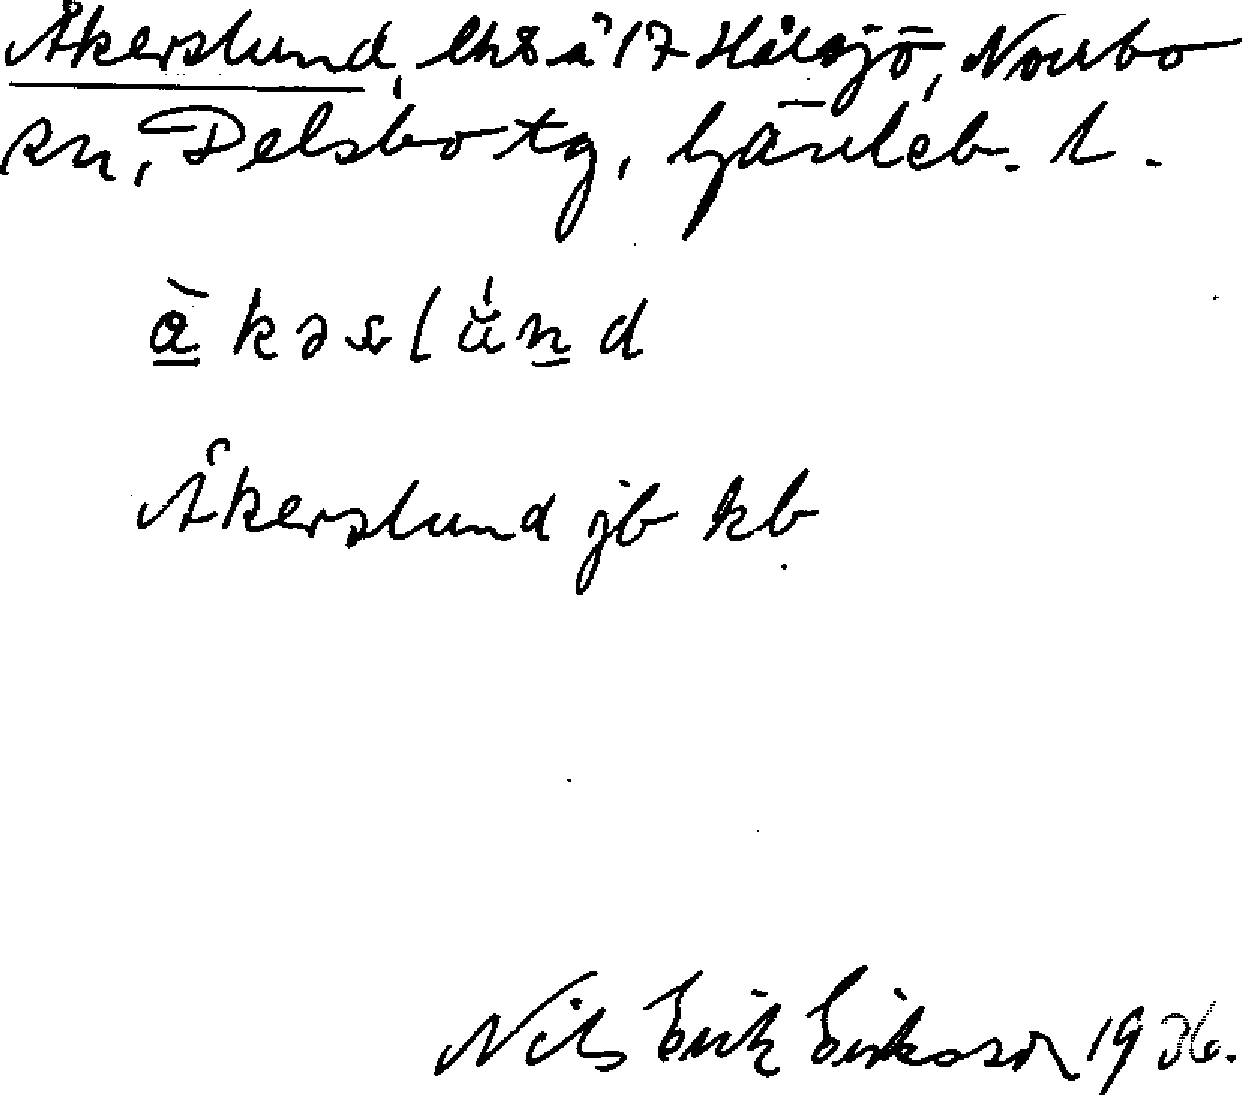 Åkerslund, lhs å 17 Hålsjö, Norrbo
sn, Delsbo tg, Gävleb. l.
å̀kəslúnd
Åkerslund jb kb
Nils Erik Eriksson 1936.